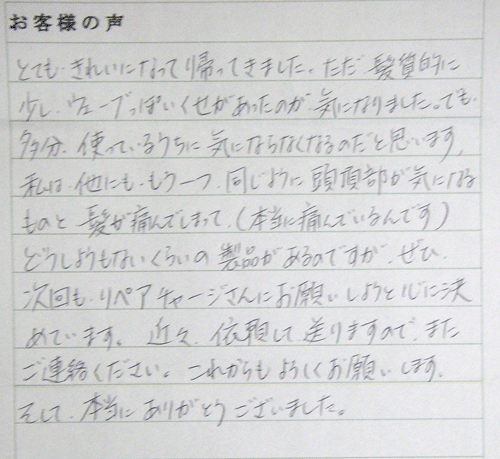 お客様の声
とても、きれいになって帰ってきました。ただ髪質的に
少し、ウェーブっぽいくせがあったのが、気になりました。でも、
多分、使っているうちに気にならなくなるのだと思います。
私は、他にも、もう一つ、同じように頭頂部が気になる
ものと髪が痛んでしまって、(本当に痛んでいるんです)
どうしようもないくらいの製品があるのですが、ぜひ、
次回も、リペアチャージさんにお願いしようと心に決
めています。近々、依頼して、送りますので、また
ご連絡ください。これからもよろしくお願いします。
そして、本当にありがとうございました。